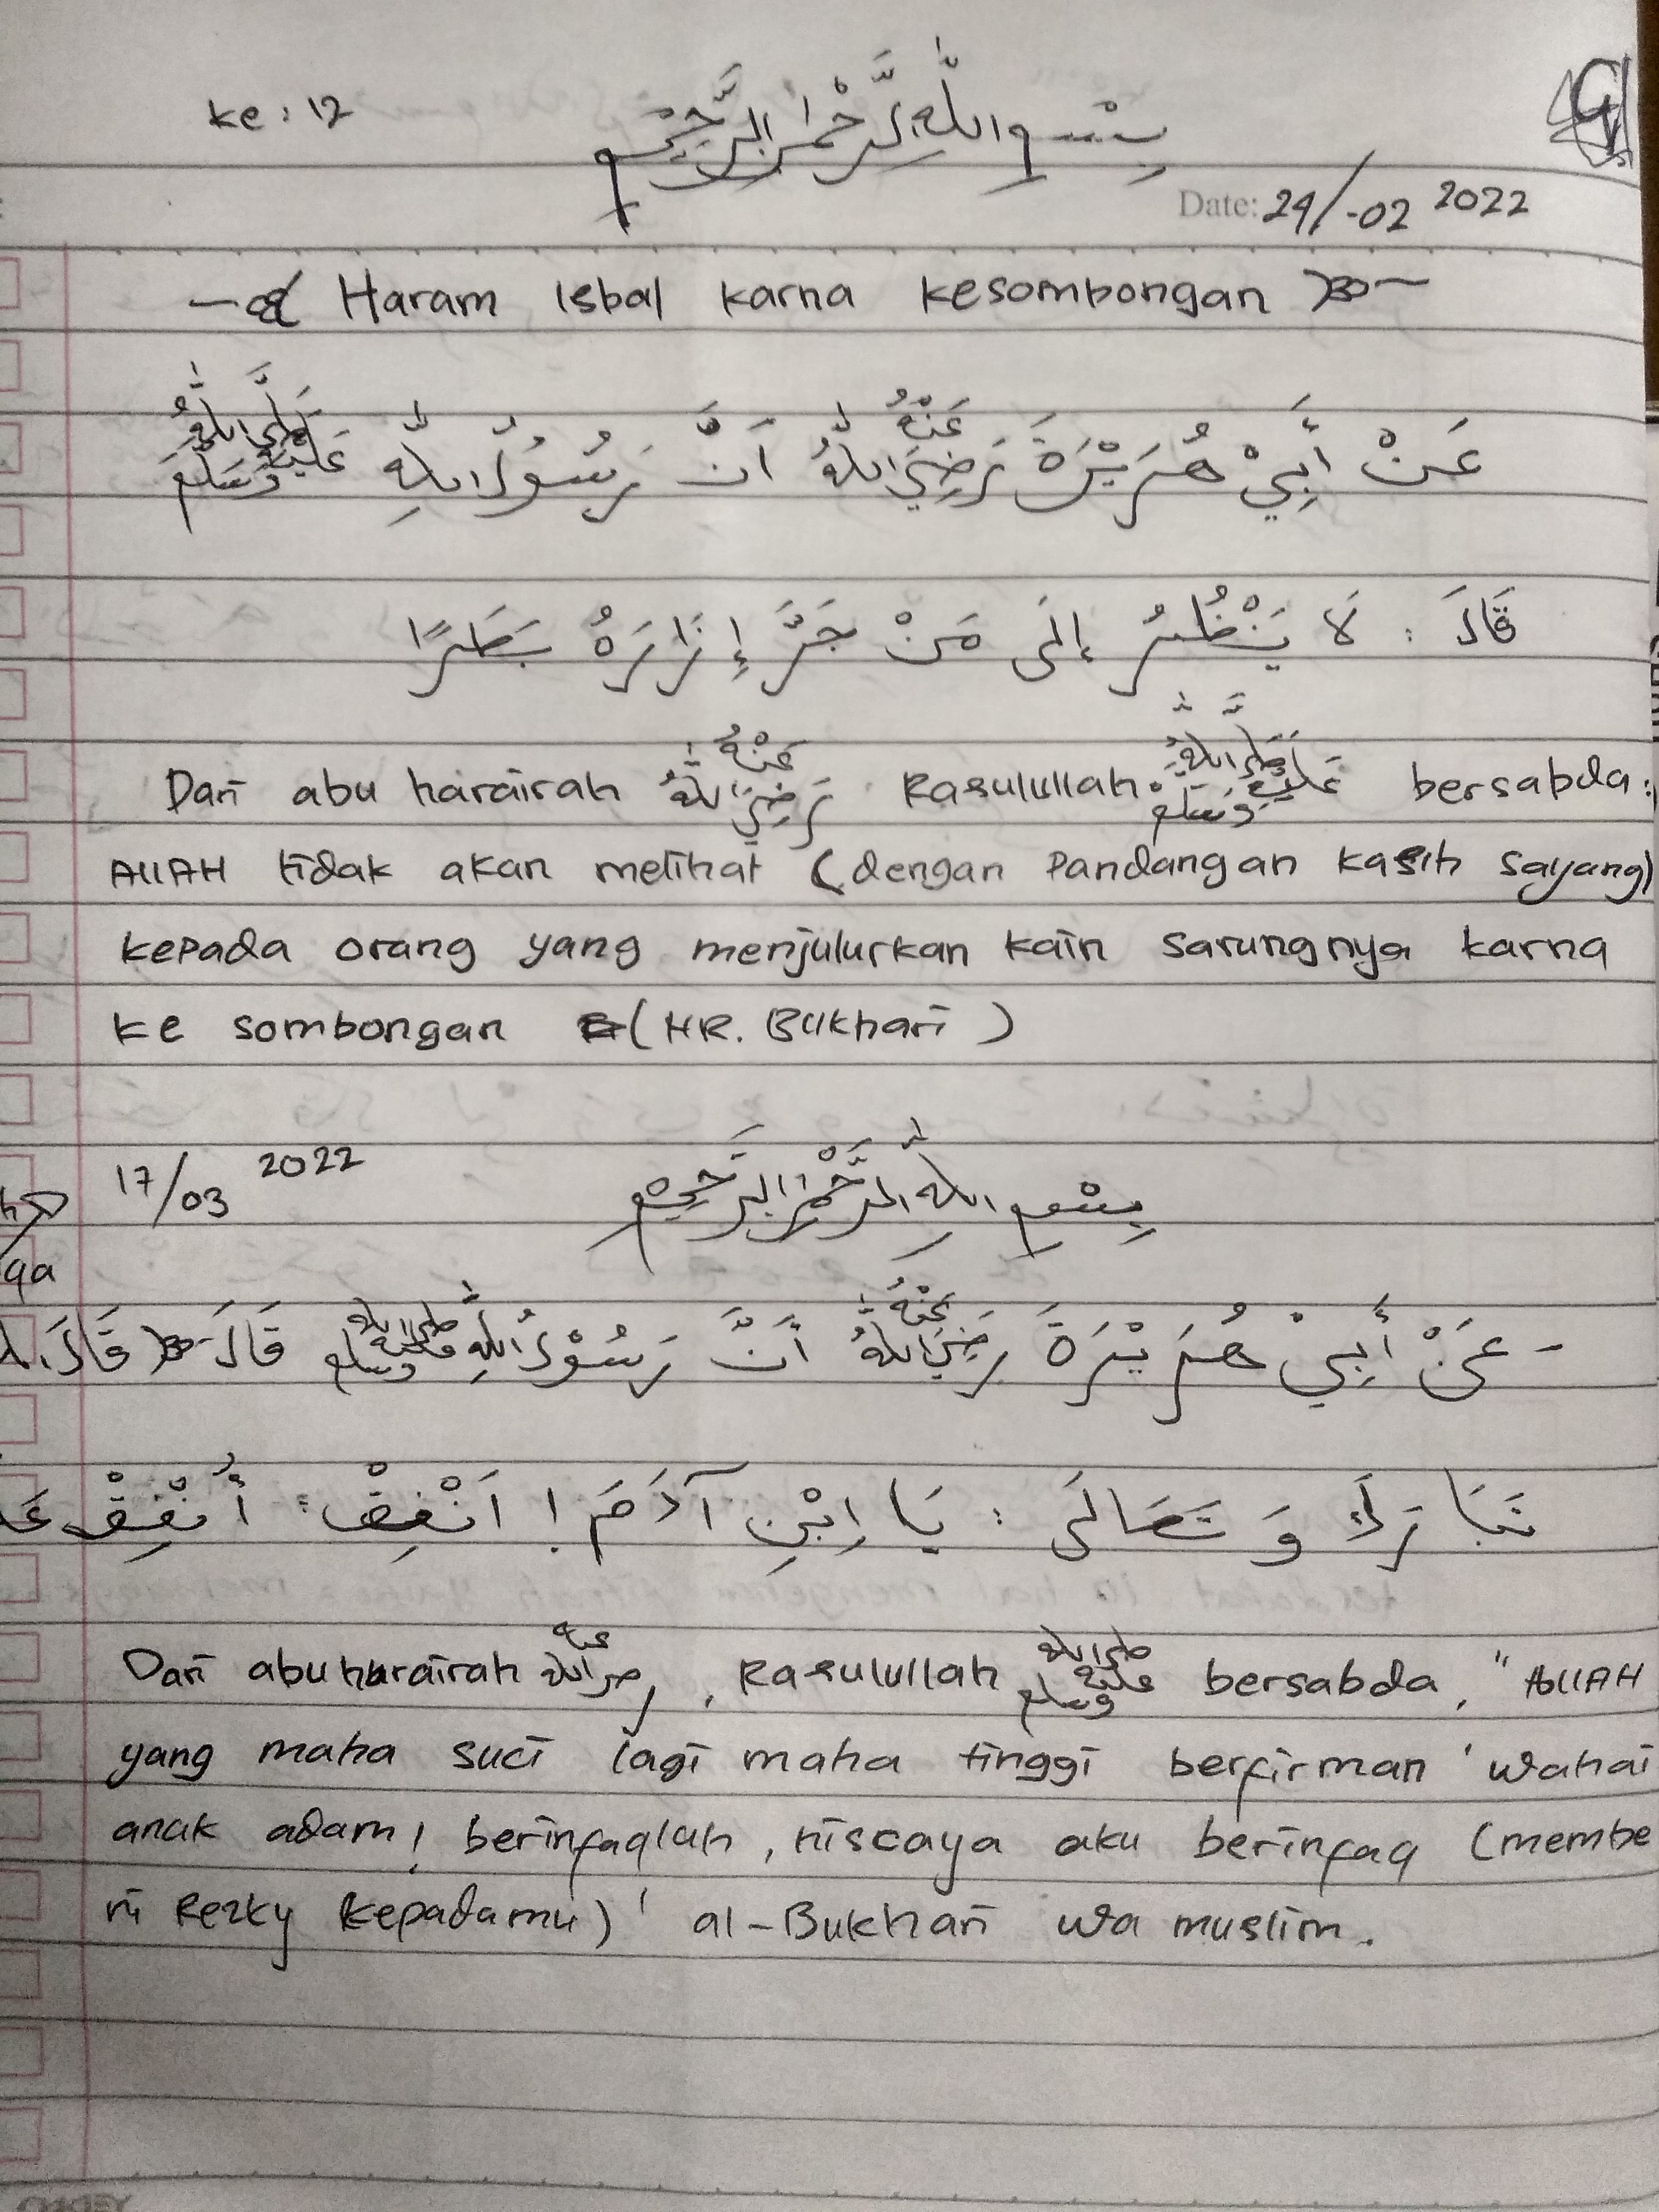 ke : 12
بِسْمِ اللّٰهِ الرَّحْمٰنِ الرَّحِيْمِ
Date: 24/-02 2022
Haram Isbal karna kesombongan
عَنْ أَبِيْ هُرَيْرَةَ رَضِيَ اللّٰهُ عَنْهُ اَنَّ رَسُوْلُ اللّٰهِ صَلَّى اللّٰهُ عَلَيْهِ وَسَلَّمَ
قَالَ : لَا يَنْظُرُ إِلَى مَنْ جَرَّ إِزَارَهُ بَطَرًا
Dari abu harairah رَضِيَ اللّٰهُ عَنْهُ Rasulullah صَلَّى اللّٰهُ عَلَيْهِ وَسَلَّمَ bersabda :
AllAH tidak akan melihat (dengan Pandangan kasih sayang)
kepada orang yang menjulurkan kain sarungnya karna
ke sombongan (HR. Bukhari)
17/03 2022
بِسْمِ اللّٰهِ الرَّحْمٰنِ الرَّحِيْمِ
qa
- عَنْ أَبِيْ هُرَيْرَةَ رَضِيَ اللّٰهُ عَنْهُ أَنَّ رَسُوْلُ اللّٰهِ صلى الله عليه وسلم قَالَ قَالَ
تَبَا رَكَ وَ تَعَالَى : يَا ابْنِ آدَمَ ! اَنْفِقْ : أُنْفِقْ
Dari abu hurairah رضي الله عنه, Rasulullah صلى الله عليه وسلم bersabda, "AllAH
yang maha suci lagi maha tinggi berfirman 'wahai
anak adam! berinfaqlah, niscaya aku berinfaq (membe
ri Rezky kepadamu)' al-Bukhari wa muslim.